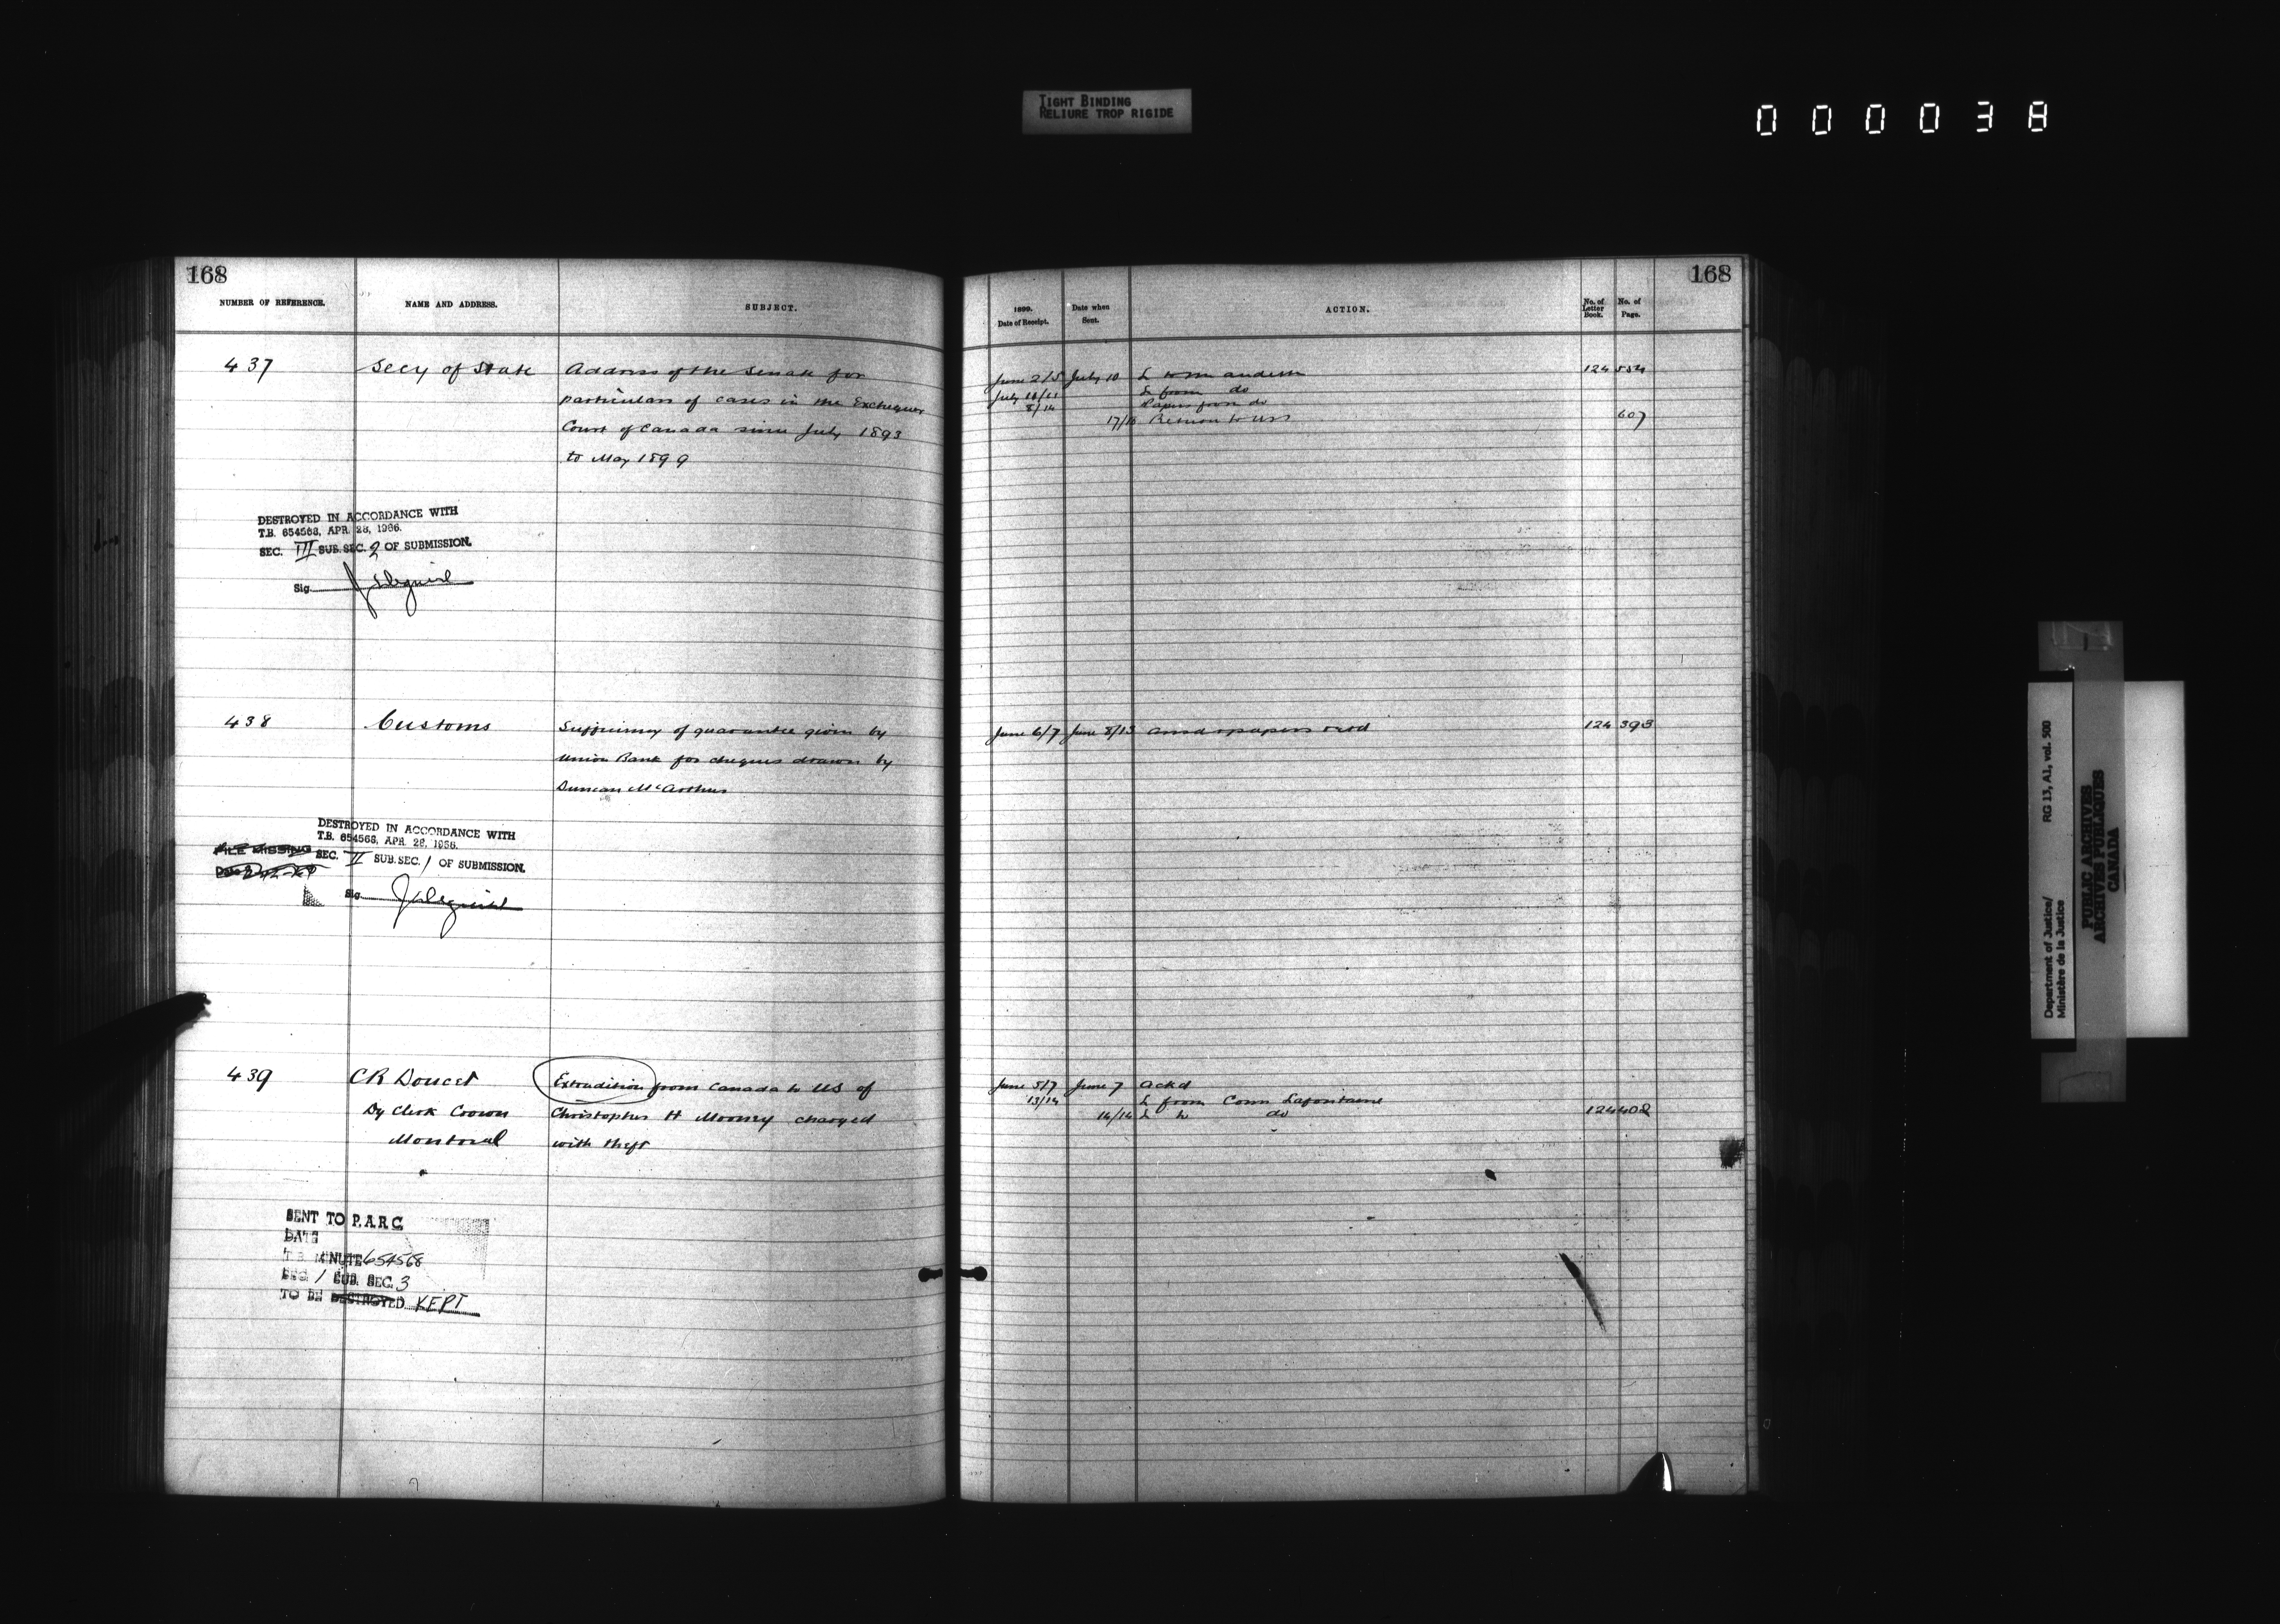 TIGHT BINDING
RELIURE TROP RIGIDE
000038
168
NUMBER OF REFERENCE.
NAME AND ADDRESS.
SUBJECT.
437
Secy of State
Address of the Senate for
particulars of cases in the Exchequer
Court of Canada since July 1893
to May 1899
DESTROYED IN ACCORDANCE WITH
T.B. 654568, APR. 28, 1966.
SEC. III SUB.SEC. 2 OF SUBMISSION.
Sig.
438
Customs
Sufficiency of guarantee given by
Union Bank for cheques drawn by
Duncan McArthur
FILE MISSING
DESTROYED IN ACCORDANCE WITH
T.B. 654568, APR. 28, 1966.
SEC. II SUB.SEC. 1 OF SUBMISSION.
Sig.
439
CR Doucet
Dy Clerk Crown
Montreal
Extradition from Canada to US of
Christopher H Mooney charged
with theft
SENT TO P.A.R.C.
DATE
T.B. MINUTE 654568
SEC. 1 SUB. SEC. 3
TO BE DESTROYED KEPT
168
1899.
Date of Receipt.
Date when
Sent.
ACTION.
No. of
Letter
Book.
No. of
Page.
June 2/5 July 10 L to 124 554
July 10/11 L from do
8/14 Papers from do
17/18 Return to USS 607
June 6/7 June 8/13 papers retd 124 393
June 5/7 June 7 Ackd
13/14 L from Comr Lafontaine
14/14 L to do 124 402
Department of Justice/
Ministère de la Justice
RG 13, A1, vol. 500
PUBLIC ARCHIVES
ARCHIVES PUBLIQUES
CANADA